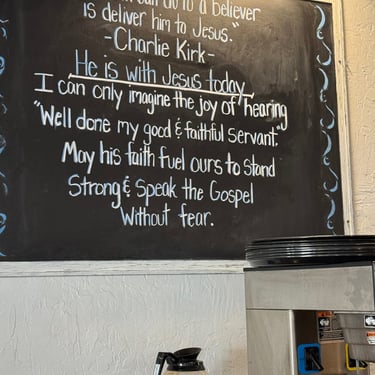 can do to a believer
is deliver him to Jesus."
-Charlie Kirk-
He is with Jesus today
I can only imagine the joy of hearing
"Well done my good & faithful servant."
May his faith fuel ours to stand
Strong & Speak the Gospel
Without fear.